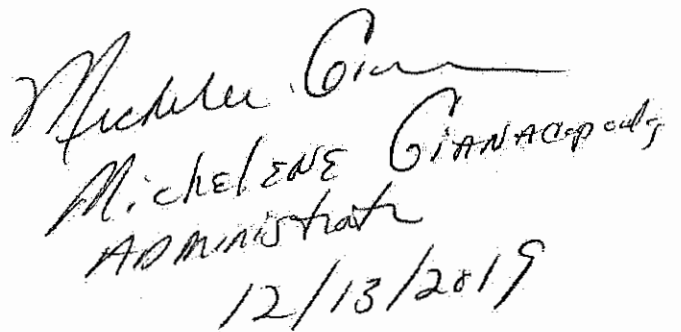 Michelene Gian
MichelENE GiANAcopoulos
ADMinistrator
12/13/2019